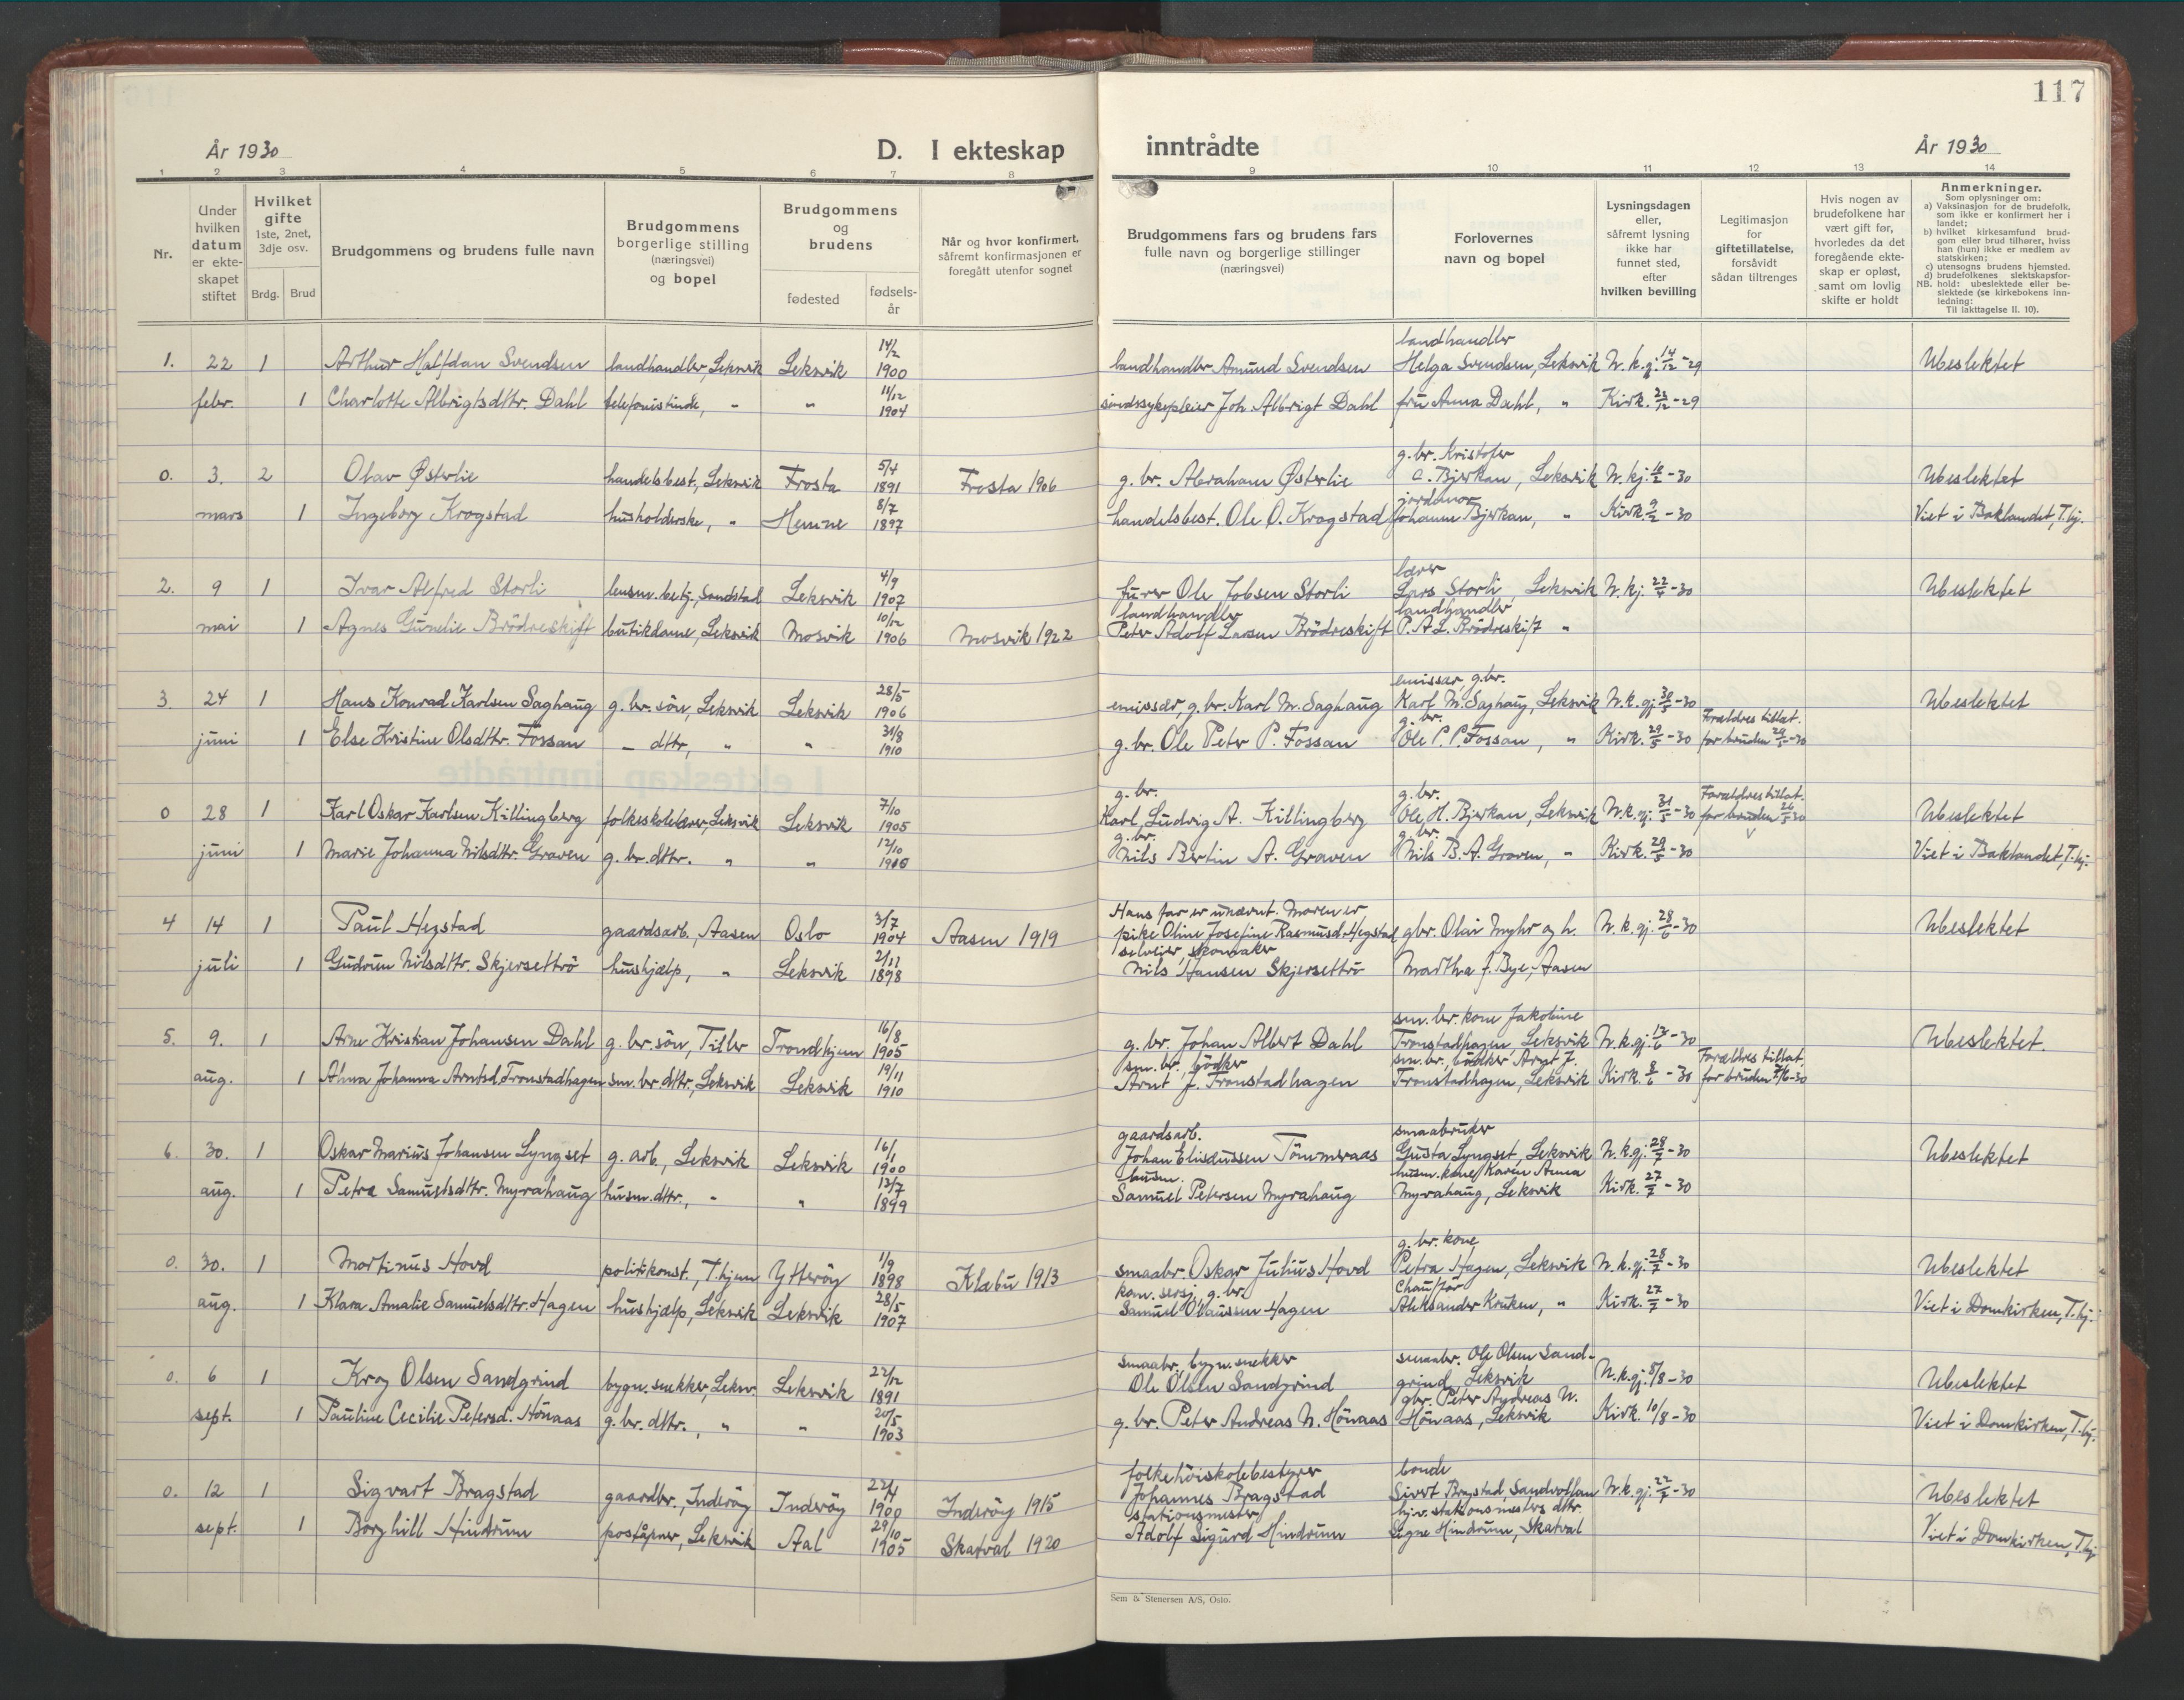 117
År 1930
D. I ekteskap
inntrådte
År 1930
1 2 3 4 5 6 7 8 9 10 11 12 13 14
Nr.
Under hvilken datum er ekteskapet stiftet
Hvilket gifte 1ste, 2net, 3dje osv.
Brdg. Brud
Brudgommens og brudens fulle navn
Brudgommens borgerlige stilling (næringsvei) og bopel
Brudgommens og brudens
fødested
fødselsår
Når og hvor konfirmert, såfremt konfirmasjonen er foregått utenfor sognet
Brudgommens fars og brudens fars fulle navn og borgerlige stillinger (næringsvei)
Forlovernes navn og bopel
Lysningsdagen eller, såfremt lysning ikke har funnet sted, efter hvilken bevilling
Legitimasjon for giftetillatelse, forsåvidt sådan tiltrenges
Hvis nogen av brudefolkene har vært gift før, hvorledes da det foregående ekteskap er opløst, samt om lovlig skifte er holdt
Anmerkninger.
Som oplysninger om:
a) Vaksinasjon for de brudefolk, som ikke er konfirmert her i landet;
b) hvilket kirkesamfund brudgom eller brud tilhører, hviss han (hun) ikke er medlem av statskirken;
c) utensogns brudens hjemsted.
d) brudefolkenes slektskapsforhold: ubeslektede eller beslektede (se kirkebokens innledning:
NB.
Til iakttagelse II. 10).
1. 22 1 Arthur Halfdan Svendsen landhandler, Leksvik Leksvik 14/2 1900 landhandler Amund Svendsen landhandler Helga Svendsen, Leksvik N.k.gj. 14/12-29 Ubeslektet
febr. 1 Charlotte Albrigtsdttr. Dahl telefonistinde, " " 11/12 1904 sindssykepleier Joh. Albrigt Dahl fru Anna Dahl, " Kirk. 22/12-29
0. 3. 2 Olav Østerlie handelsbest., Leksvik Frosta 5/4 1891 Frosta 1906 g. br. Abraham Østerlie g. br. Kristofer C. Bjerkan, Leksvik N.kj. 10/2-30 Ubeslektet
mars 1 Ingeborg Krogstad husholderske, " Hemne 8/7 1897 handelsbest. Ole O. Krogstad jordmor Johanne Bjerkan, " Kirk. 9/2-30 Viet i Baklandet, T.hj.
2. 9 1 Ivar Alfred Storli lensm. betj., Sandstad Leksvik 4/9 1907 furer Ole Jobsen Storli lærer Lars Storli, Leksvik N.kj. 22/4-30 Ubeslektet
mai 1 Agnes Gunelie Brödreskift butikdame, Leksvik Mosvik 10/12 1906 Mosvik 1922 landhandler Peter Adolf Larsen Brödreskift landhandler P. A. L. Brödreskift "
3. 24 1 Hans Konrad Karlsen Saghaug g. br. sön, Leksvik Leksvik 28/5 1906 emissær, g. br. Karl M. Saghaug emissær, g. br. Karl M. Saghaug, Leksvik N.k.gj. 30/5-30 Ubeslektet
juni 1 Else Kristine Olsdttr. Fossan – dttr, " " 31/8 1910 g. br. Ole Peter P. Fossan g. br. Ole P. P. Fossan, " Kirk. 29/5-30 Forældres tillat. for bruden 29/5-30
0 28 1 Karl Oskar Karlsen Killingberg folkeskolelærer, Leksvik Leksvik 7/10 1905 g. br. Karl Ludvig A. Killingberg g. br. Ole H. Bjerkan, Leksvik N.k.gj. 31/5-30 Forældres tillat. for bruden 26/5 30 Ubeslektet
juni 1 Marie Johanna Nilsdttr. Graven g. br. dttr. " " 12/10 g. br. Nils Bertin A. Graven g. br. Nils B. A. Graven, " Kirk. 29/5-30 Viet i Baklandet, T.hj.
4 14 1 Paul Hegstad gaardsarb., Aasen Oslo 3/7 1904 Aasen 1919 Hans far er unævnt. Moren er pike Oline Josefine Rasmusd. Hegstad gbr. Olav Myhr og h. N.k.gj. 28/6-30 Ubeslektet
juli 1 Gudrun Nilsdttr. Skjersettrö hushjælp, " Leksvik 2/11 1898 selveier, skomaker Nils Hansen Skjersettrö Martha J. Bye, Aasen
5. 9. 1 Arne Kristian Johansen Dahl g. br. sön, Tiller Trondhjem 16/8 1905 g. br. Johan Albert Dahl sm. br. kone Jakobine Tronstadhagen, Leksvik N.k.gj. 13/6-30 Ubeslektet.
aug. 1 Alma Johanna Arntsd. Tronstadhagen sm. br. dttr., Leksvik Leksvik 19/11 1910 sm. br., bödker Arnt J. Tronstadhagen sm. br. bödker Arnt J. Tronstadhagen, Leksvik Kirk. 8/6-30 Forældres tillat. for bruden 7/6-30
6. 30. 1 Oskar Marius Johansen Lyngset g. arb., Leksvik Leksvik 16/1 1900 gaardsarb. Johan Eliseussen Tömmeraas smaabruker Gusta Lyngset, Leksvik N.k.gj. 28/7-30 Ubeslektet
aug. 1 Petra Samuelsdttr. Myrahaug husm. dttr., " " 13/7 1899 husm. Samuel Petersen Myrahaug husm. kone Karen Anna Myrahaug, Leksvik Kirk. 27/7-30
0. 30. 1 Martinus Hovd politikonst., T.hjem Ytteröy 1/9 1898 Klæbu 1913 smaabr. Oskar Julius Hovd g. br. kone Petra Hagen, Leksvik N.k.gj. 28/7-30 Ubeslektet
aug. 1 Klara Amalie Samuelsdttr. Hagen hushjælp, Leksvik Leksvik 28/5 1907 kom. sersj., g. br. Samuel Olaussen Hagen Chauffør Aleksander Kruken, " Kirk. 27/7-30 Viet i Domkirken, T.hj.
0. 6 1 Kroy Olsen Sandgrind bygn. snekker, Leksv. Leksvik 22/12 1891 smaabr., bygn. snekker Ole Olsen Sandgrind smaabr. Ole Olsen Sandgrind, Leksvik N.k.gj. 5/8-30 Ubeslektet
sept. 1 Pauline Cecilie Petersd. Hönaas g. br. dttr., " " 20/5 1903 g. br. Peter Andreas N. Hönaas gbr. Peter Andreas N. Hönaas, Leksvik Kirk. 10/8-30 Viet i Domkirken, T.hj.
0. 12 1 Sigvart Bragstad gaardbr., Inderöy Inderöy 22/4 1900 Inderöy 1915 folkehöiskolebestyrer Johannes Bragstad bonde Sivert Bragstad, Sandvollan N.k.gj. 22/7-30 Ubeslektet
sept. 1 Borghill Hindrum poståpner, Leksvik Aal 29/10 1905 Skatval 1920 stationsmester Adolf Sigurd Hindrum hjv. stationsmesters dttr. Signe Hindrum, Skatval Viet i Domkirken, T.hj.
Sem & Stenersen A/S, Oslo.